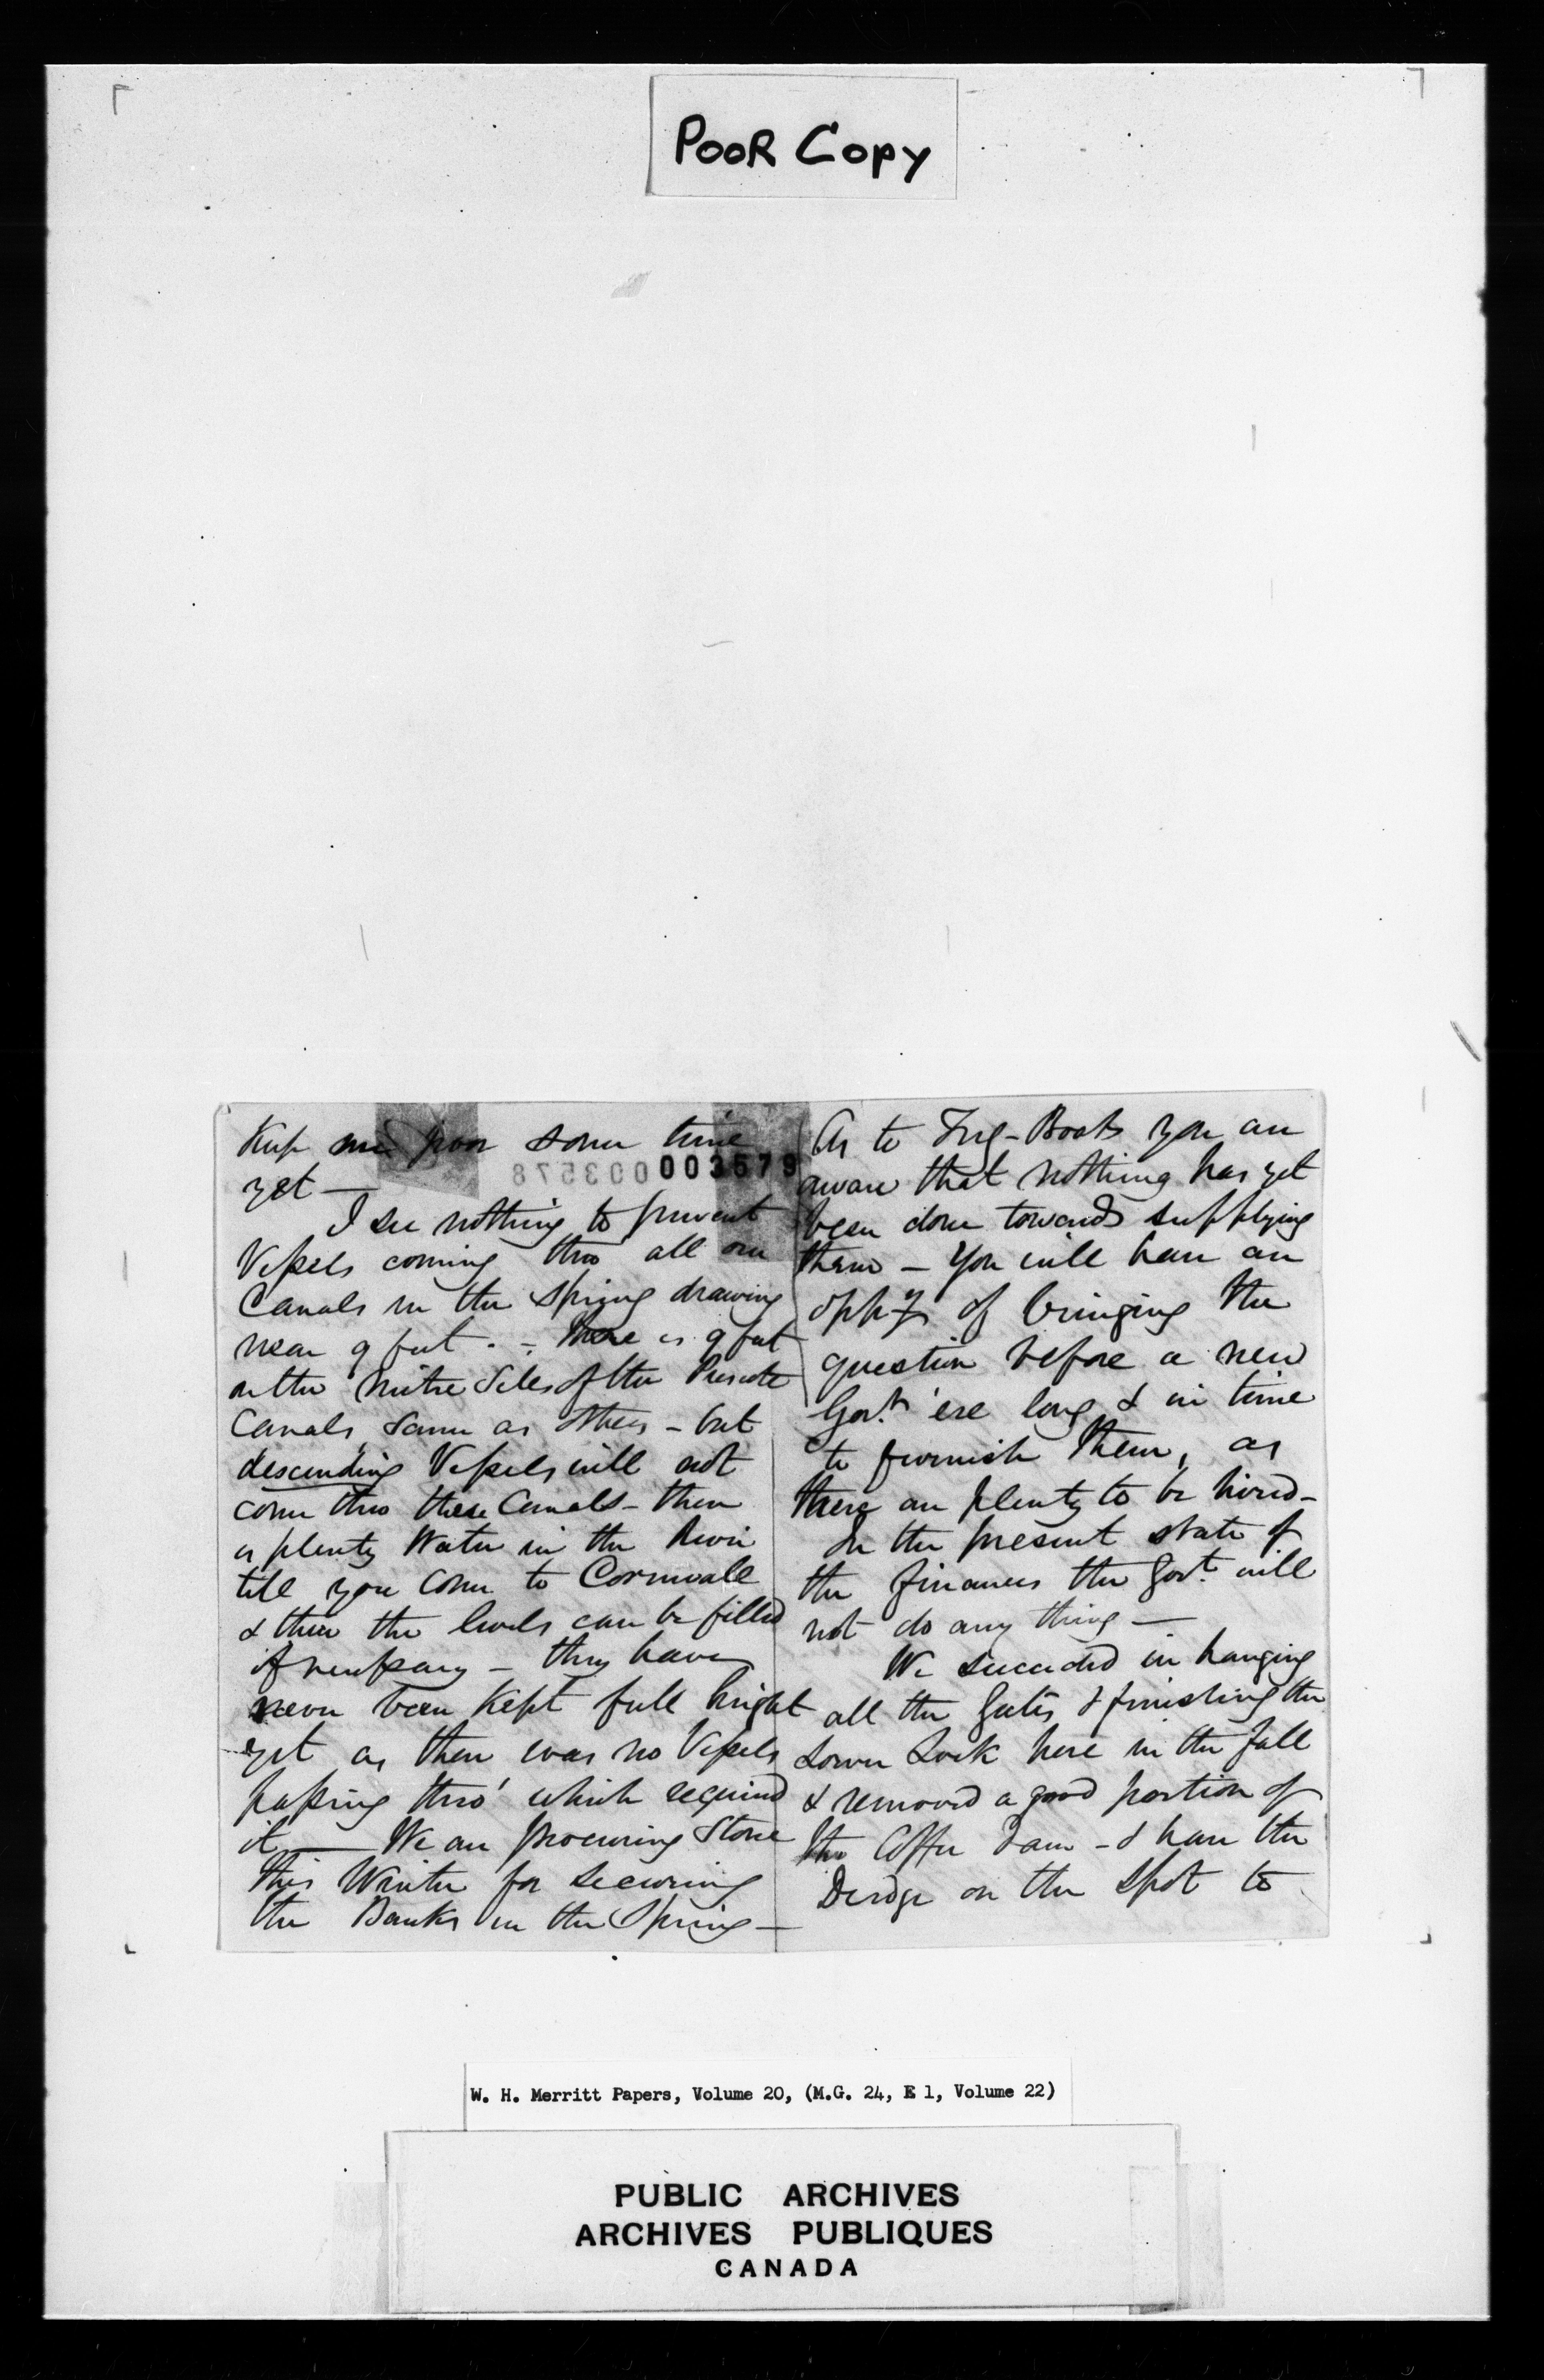 POOR COPY
Keep me poor some time
003578 003579
yet —
I see nothing to prevent
Vessels coming thro all our
Canals in the Spring drawing
near 9 feet . - there is 9 feet
on the Mitre Siles of the Prescott
Canals, same as others - but
descending Vessels will not
come thro these Canals - there
is plenty Water in the River
till you come to Cornwall
& there the levels can be filled
if necessary - they have
never been Kept full height
yet as there was no Vessels
passing thro' which required
it — We are procuring Stone
this Winter for securing
the Banks in the Spring —
As to Tug-Boats you are
aware that nothing has yet
been done towards supplying
them - You will have an
oppy of bringing the
question before a new
Govt 'ere long & in time
to furnish them, as
there are plenty to be hired -
In the present state of
the finances the Govt will
not do any thing —
We succeeded in hanging
all the Gates & finishing the
Lower Lock here in the fall
& removed a good portion of
the Coffer Dam - & have the
Dredge on the Spot to
W. H. Merritt Papers, Volume 20, (M.G. 24, E 1, Volume 22)
PUBLIC ARCHIVES
ARCHIVES PUBLIQUES
CANADA